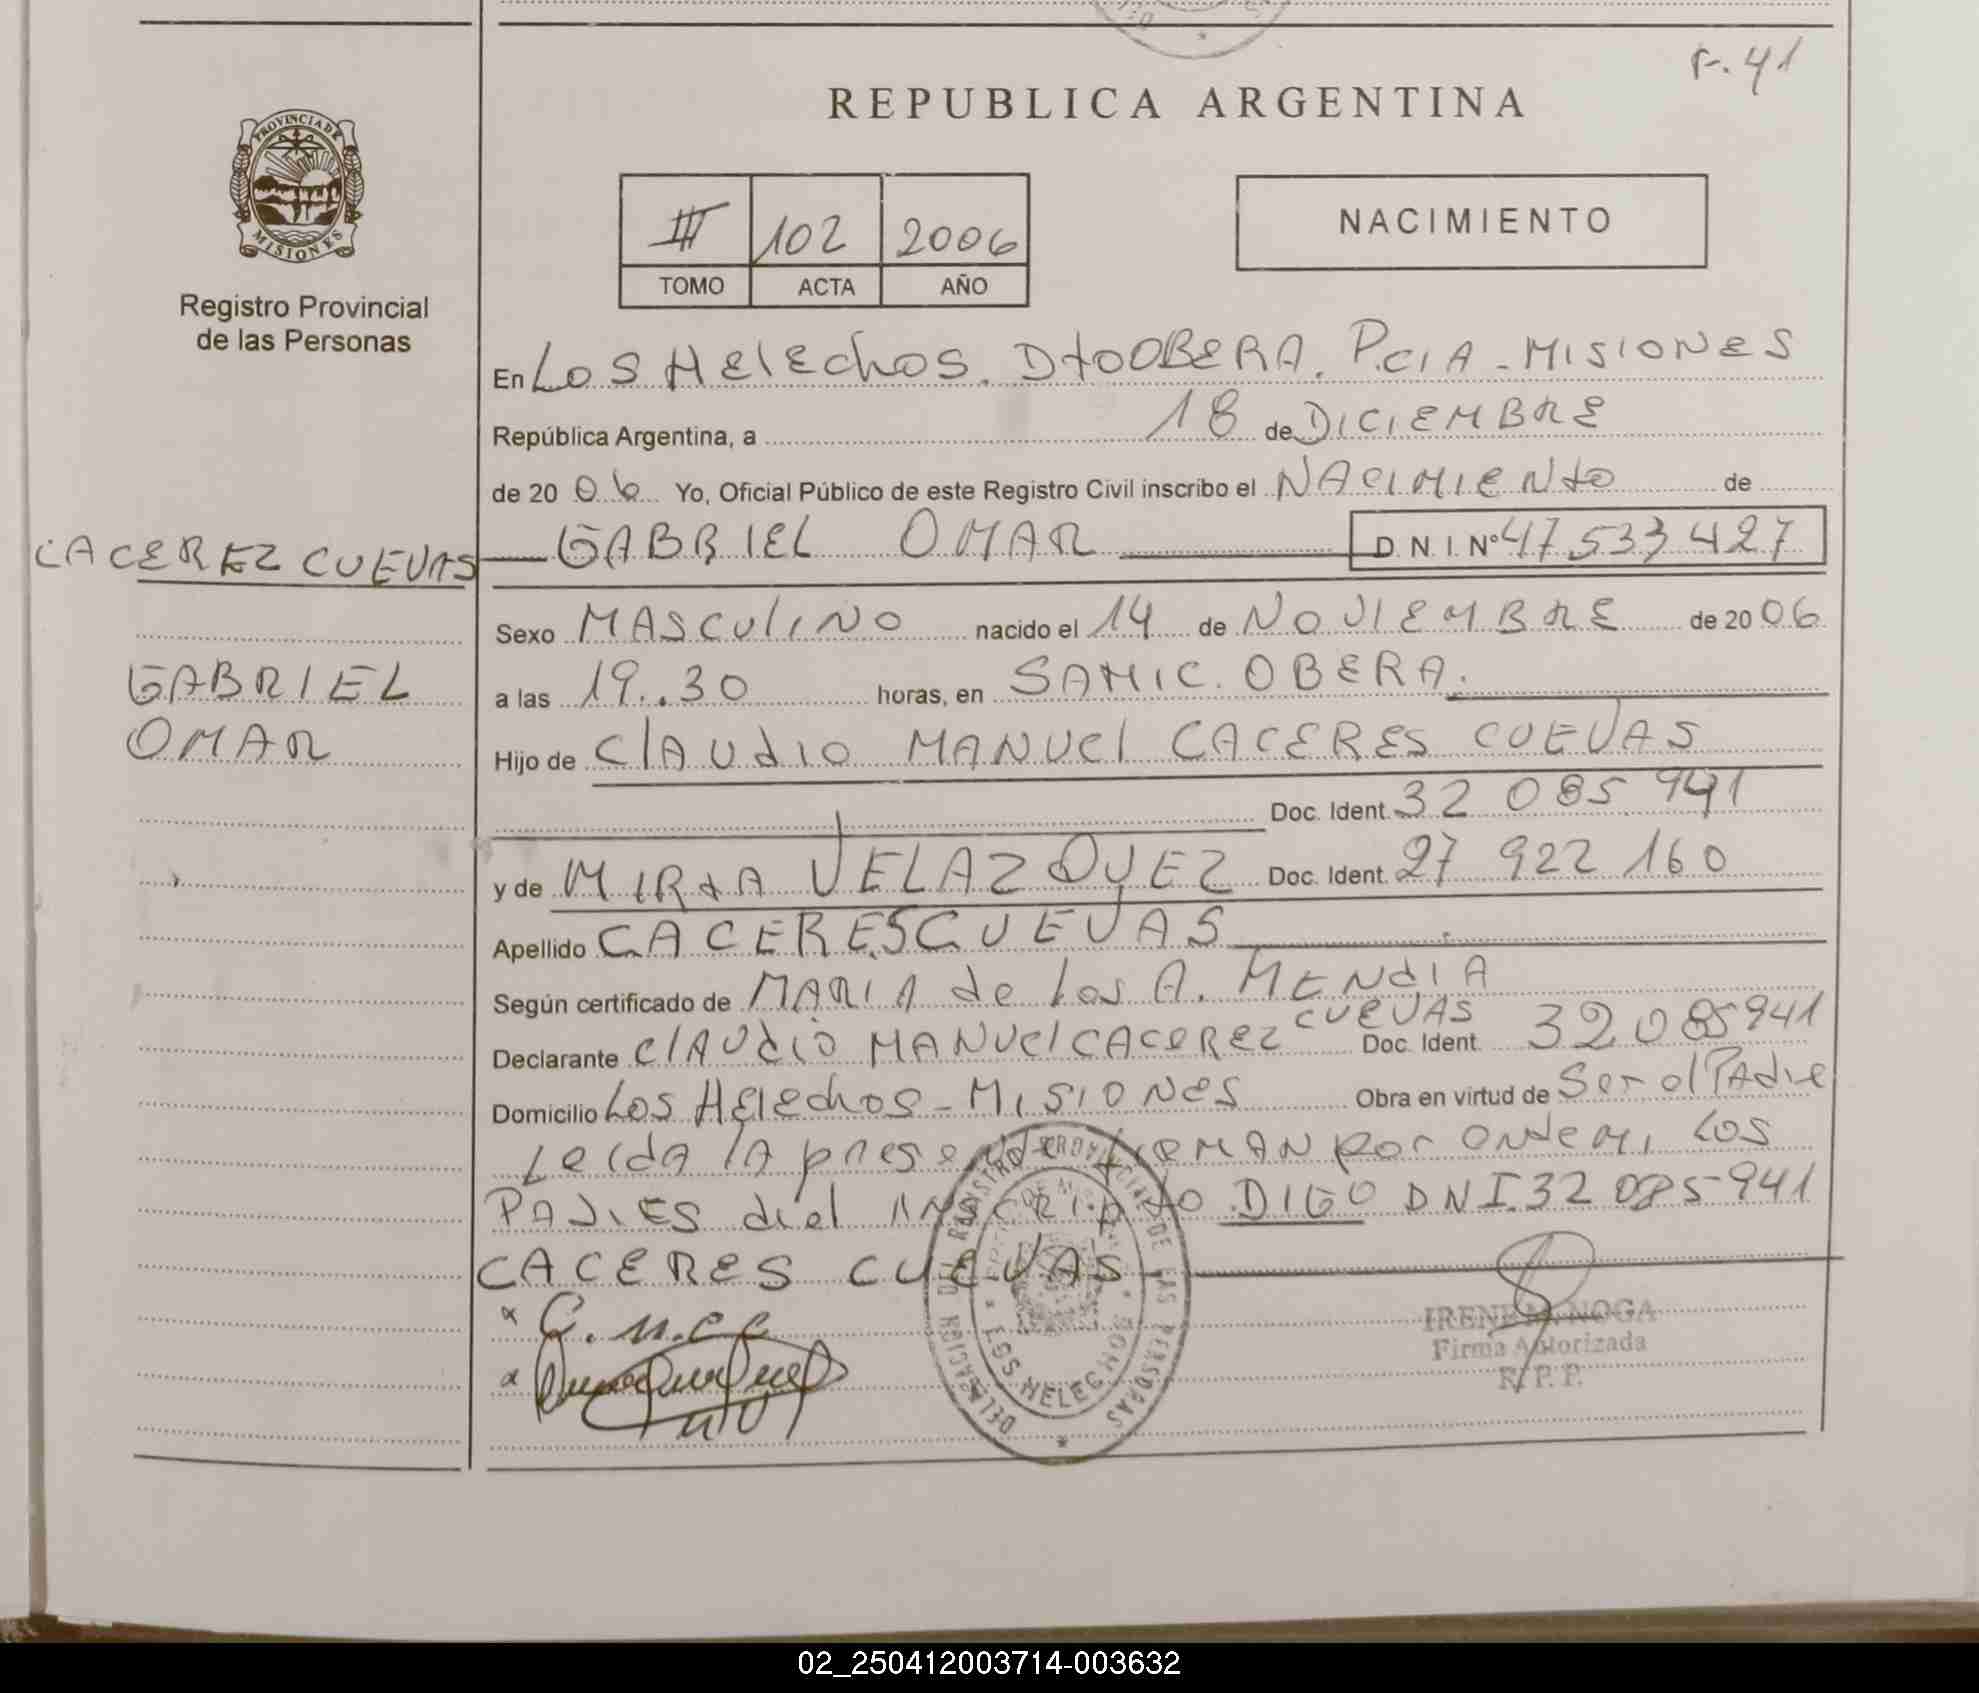 F. 41
PROVINCIA DE
MISIONES
Registro Provincial
de las Personas
REPUBLICA ARGENTINA
III 102 2006
TOMO ACTA AÑO
NACIMIENTO
En Los HElEchos. DtoOBERA. PCIA - MISIONES
República Argentina, a 18 de DICIEMBRE
de 20 06 Yo, Oficial Público de este Registro Civil inscribo el NACIMIENto de
CACEREZ CUEVAS GABRIEL OMAR D.N.I. Nº 47 533 427
Sexo MASCUlINO nacido el 14 de NOVIEMBRE de 20 06
GABRIEL
a las 19..30 horas, en SAMIC. OBERA.
OMAR
Hijo de ClAUdIO MANUEl CACERES CUEVAS
Doc. Ident. 32 085 941
y de MIRtA VELAZQUEZ Doc. Ident. 27 922 160
Apellido CACERES CUEVAS
Según certificado de MARIA de Los A. MENdIA
Declarante ClAUdiO MANUEl CACEREZ CUEVAS Doc. Ident. 32 085941
Domicilio Los HElEchos - MISIONES Obra en virtud de Ser el PAdre
LeIdA lA presente firMAN por ante MI, Los
PAdRES del INSCRIPto DIGO DNI.32 085941
CACERES CUEVAS
C. M. C C
DELEGACION DEL REGISTRO PROVINCIAL DE LAS PERSONAS
LOS HELECHOS
IRENE M. NOGA
Firma Autorizada
R. P. P.
02_250412003714-003632